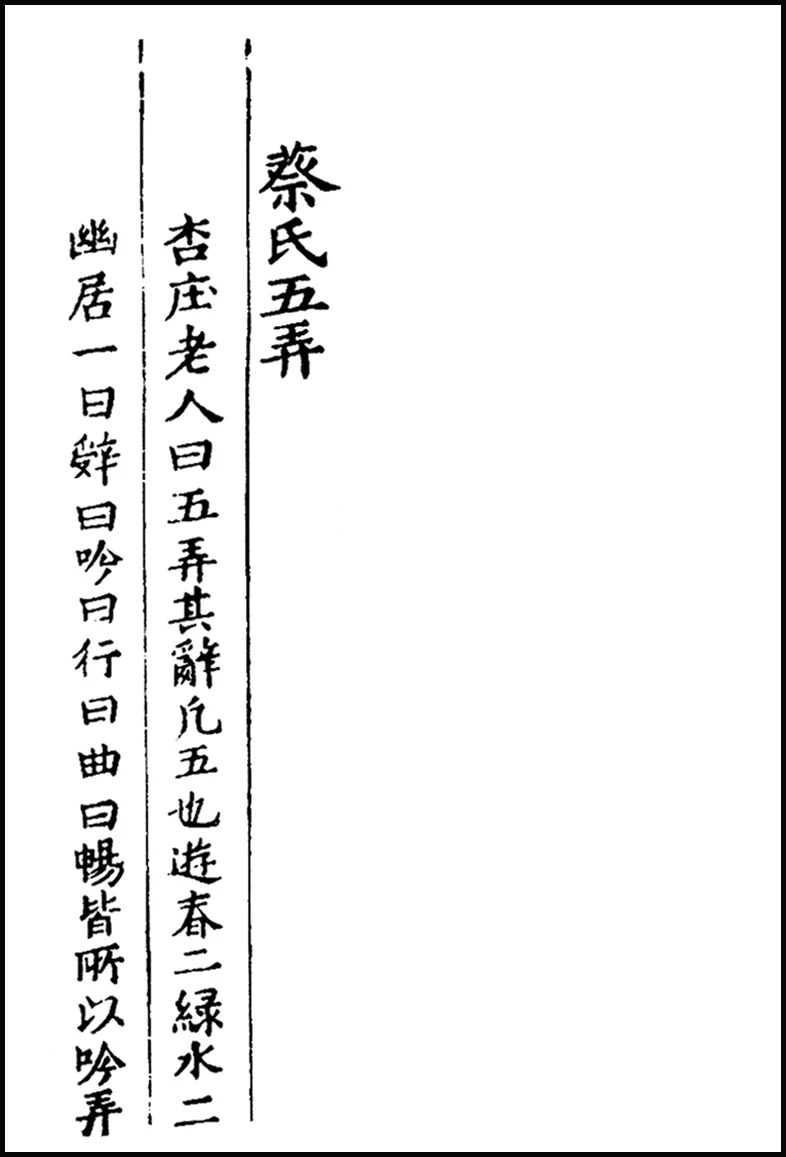 蔡氏五弄
杏庄老人曰五弄其辭凢五也遊春二緑水二
幽居一曰辤曰吟曰行曰曲曰暢皆所以吟弄